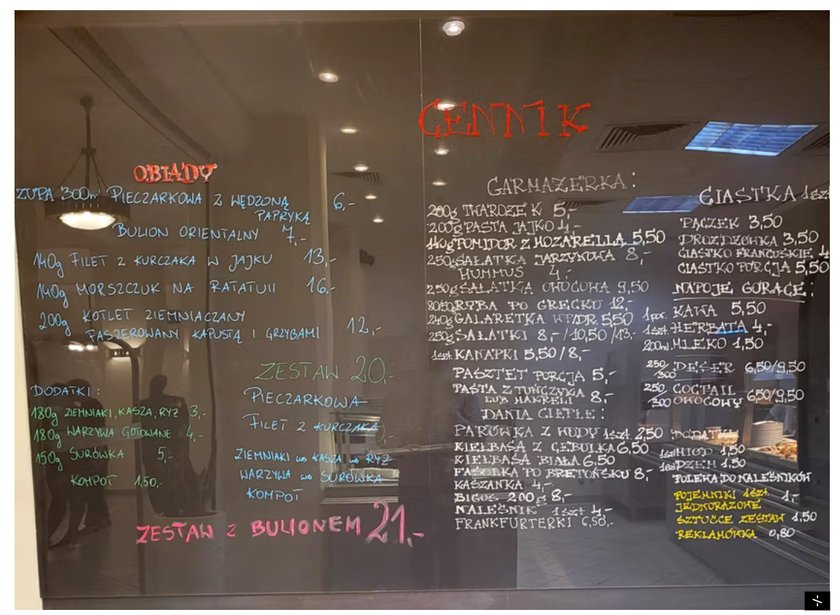 CENNIK
OBIADY
ZUPA 300ml PIECZARKOWA Z WĘDZONĄ
PAPRYKĄ 6,-
BULION ORIENTALNY 7,-
140g FILET Z KURCZAKA W JAJKU 13,-
140g MORSZCZUK NA RATATUII 16,-
200g KOTLET ZIEMNIACZANY
FASZEROWANY KAPUSTĄ I GRZYBAMI 12,-
ZESTAW 20,-
PIECZARKOWA
FILET Z KURCZAKA
ZIEMNIAKI lub KASZA lub RYŻ
WARZYWA lub SURÓWKA
KOMPOT
DODATKI:
180g ZIEMNIAKI, KASZA, RYŻ 3,-
180g WARZYWA GOTOWANE 4,-
150g SURÓWKA 5,-
KOMPOT 1,50,-
ZESTAW Z BULIONEM 21,-
GARMAŻERKA:
200g TWAROŻEK 5,-
200g PASTA JAJKO 4,-
140g POMIDOR Z MOZARELLĄ 5,50
250g SAŁATKA JARZYNOWA 8,-
HUMMUS 4,-
250g SAŁATKA OWOCOWA 9,50
RYBA PO GRECKU 12,-
240g GALARETKA 5,50
250g SAŁATKI 8,-/10,50/13,-
1szt KANAPKI 5,50/8,-
PASZTET PORCJA 5,-
PASTA Z TUŃCZYKA
LUB MAKRELI 8,-
DANIA CIEPŁE:
PARÓWKA Z WODY 1szt 2,50
KIEŁBASA Z CEBULKĄ 6,50
KIEŁBASA BIAŁA 6,50
FASOLKA PO BRETOŃSKU 8,-
KASZANKA 4,-
BIGOS 200g 8,-
NALEŚNIK 1szt 4,-
FRANKFURTERKI 6,50,-
CIASTKA 1szt
PĄCZEK 3,50
DROŻDŻÓWKA 3,50
CIASTKO FRANCUSKIE 4
CIASTKO PORCJA 5,50
NAPOJE GORĄCE:
1por. KAWA 5,50
1szt HERBATA 4,-
200ml MLEKO 1,50
250/300 DESER 6,50/9,50
250/300 COCTAIL
OWOCOWY 6,50/9,50
DODATKI
1szt MIÓD 1,50
1szt DŻEM 1,50
POLEWA DO NALEŚNIKÓW
POJEMNIKI 1szt 1,-
JEDNORAZOWE
SZTUĆCE ZESTAW 1,50
REKLAMÓWKA 0,80